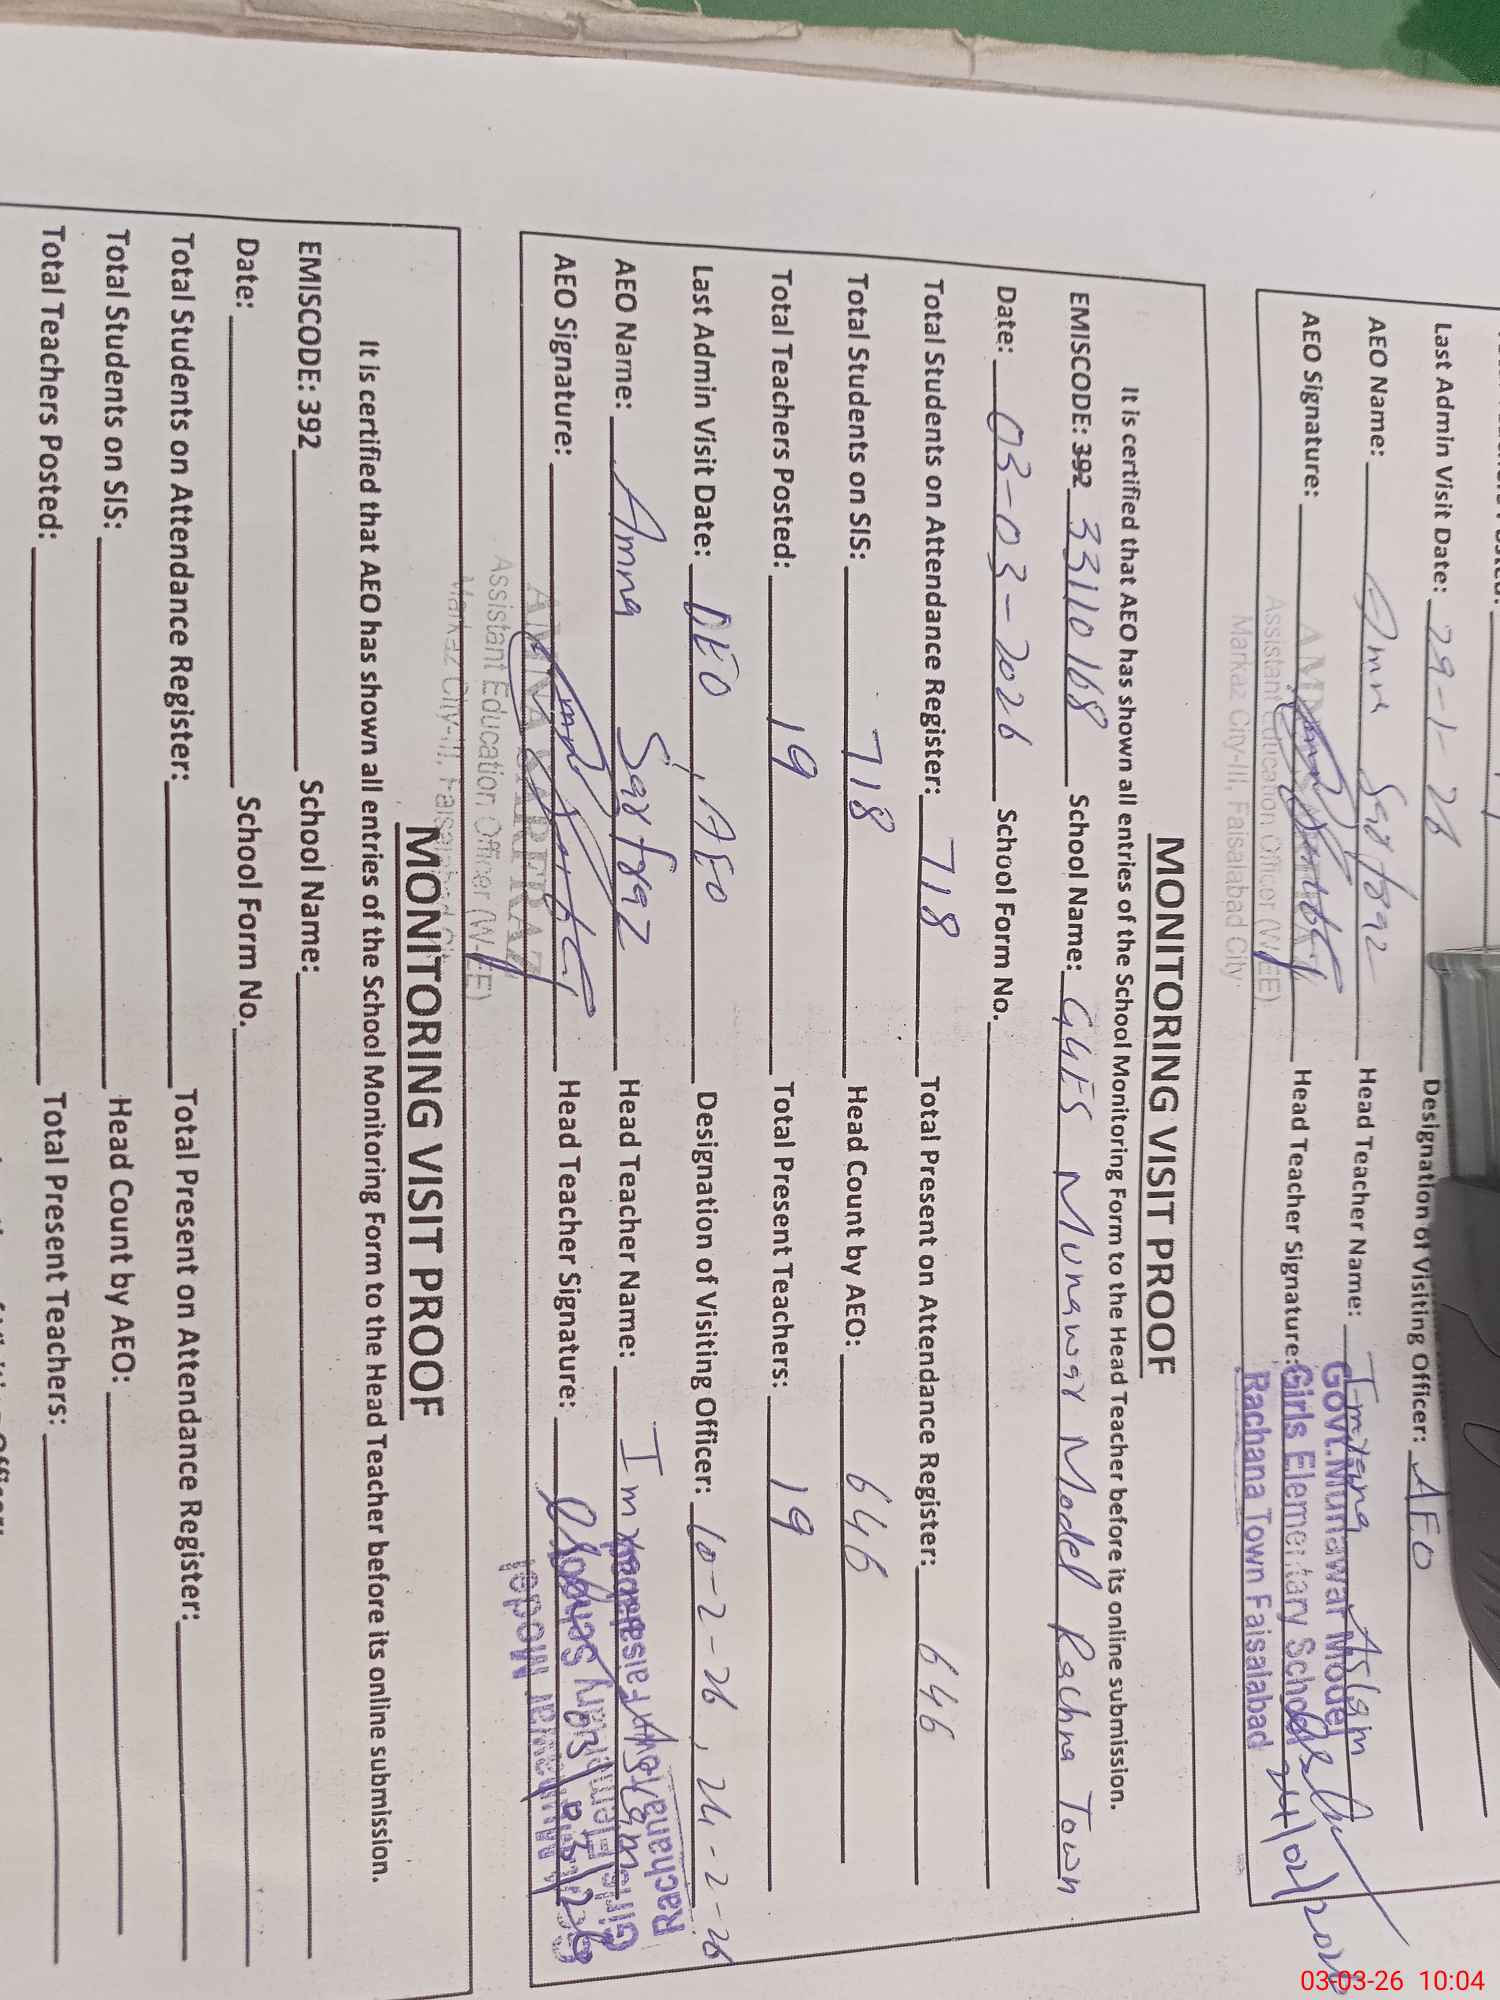 Last Admin Visit Date: 29-1-26 Designation of Visiting Officer: AEO
AEO Name: Amna Sarfraz Head Teacher Name: Imrana Aslam
AEO Signature: Head Teacher Signature:
AMNA
Assistant Education Officer (W-EE)
Markaz City-III, Faisalabad City
Govt. Munawar Model
Girls Elementary School
Rachana Town Faisalabad
24/02/2026
MONITORING VISIT PROOF
It is certified that AEO has shown all entries of the School Monitoring Form to the Head Teacher before its online submission.
EMISCODE: 392 33110168 School Name: GGES Munawar Model Rachna Town
Date: 03-03-2026 School Form No.
Total Students on Attendance Register: 718 Total Present on Attendance Register: 646
Total Students on SIS: 718 Head Count by AEO: 646
Total Teachers Posted: 19 Total Present Teachers: 19
Last Admin Visit Date: DEO, AEO Designation of Visiting Officer: 10-2-26, 24-2-26
AEO Name: Amna Sarfraz Head Teacher Name: Imrana Aslam
AEO Signature: Head Teacher Signature:
03/03/26
AMNA SARFRAZ
Assistant Education Officer (W-EE)
Markaz City-III, Faisalabad City
Girls Elementary School
Rachana Town Faisalabad
MONITORING VISIT PROOF
It is certified that AEO has shown all entries of the School Monitoring Form to the Head Teacher before its online submission.
EMISCODE: 392 School Name:
Date: School Form No.
Total Students on Attendance Register: Total Present on Attendance Register:
Total Students on SIS: Head Count by AEO:
Total Teachers Posted: Total Present Teachers:
03-03-26 10:04